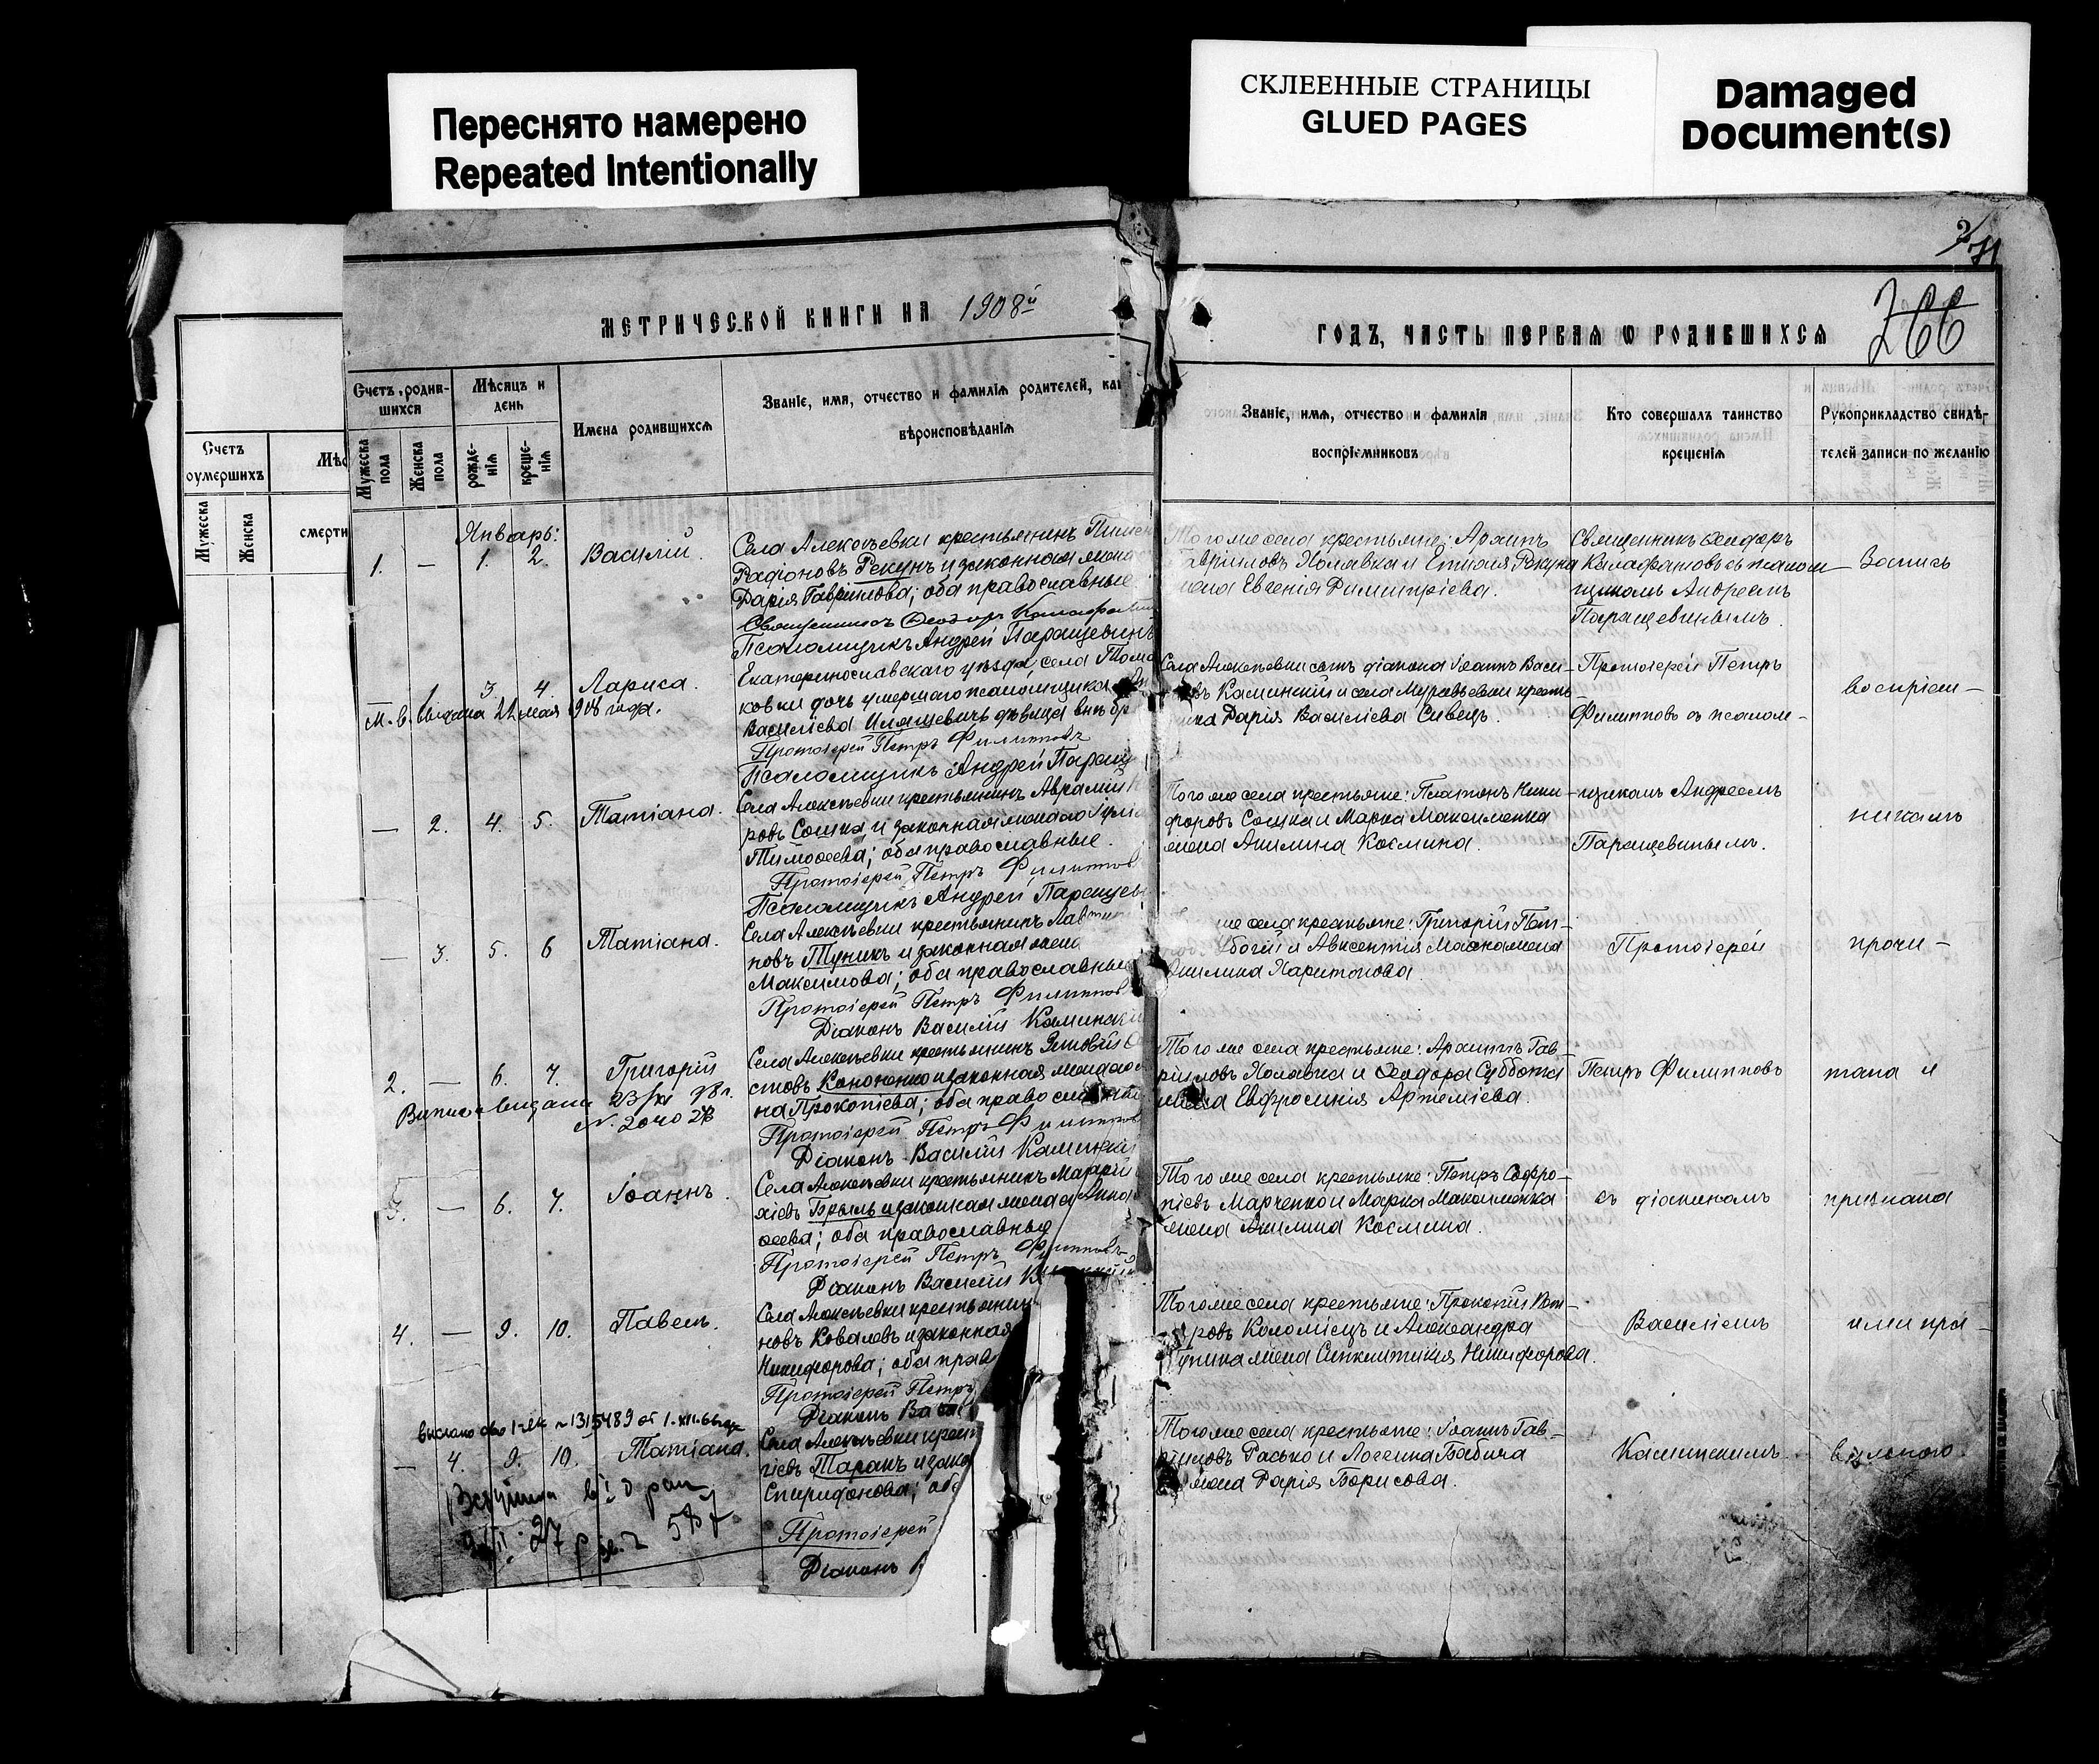 Переснято намерено
Repeated Intentionally
СКЛЕЕННЫЕ СТРАНИЦЫ
GLUED PAGES
Damaged
Document(s)
266
МЕТРИЧЕСКОЙ КНИГИ НА 1908й
ГОДЪ, ЧАСТЬ ПЕРВАЯ Ѡ РОДИВШИХСЯ
Счетъ
оумершихъ
Мужеска
Женска
Мѣс
смерти
Счетъ родив-
шихся
Мѣсяцъ и
день
Мужеска
пола
Женска
пола
рожде-
нія
креще-
нія
Имена родившихся
Званіе, имя, отчество и фамилія родителей, как
вѣроисповѣданія
Званіе, имя, отчество и фамилія
воспріемниковъ
Кто совершалъ таинство
крещенія
Рукоприкладство свидѣ-
телей записи по желанію
Январь:
1. — 1. 2. Василій.
Села Алексѣевки крестьянинъ Пимен
Радіоновъ Рекунъ и законная жена
Дарія Гавриилова; оба православные
Священникъ Ѳеодоръ
Псаломщикъ Андрей Паращевинъ
Того же села крестьяне: Архипъ
Гавріиловъ Холявка и Рекуна
жена Евгенія Димитріева.
Священникъ Ѳеодоръ
съ псалом-
щикомъ Андреемъ
Паращевинымъ.
Запись
3. 4. Лариса.
М. в. выдана 22 мая 908 года.
Екатеринославскаго уѣзда, села Тома
ковки дочь умершаго псаломщика
Василіева Иляшевичъ дѣвица внѣ бр
Протоіерей Петръ Филипповъ
Псаломщикъ Андрей Паращ
Села Алексѣевки сынъ діакона Іоаннъ Васи-
въ Каминскій и села Муравьевки кресть-
Дарія Василіева Сивецъ.
Протоіерей Петръ
Филипповъ съ псалом-
воспріем-
— 2. 4. 5. Татіана.
Села Алексѣевки крестьянинъ Аврамій
ровъ Сошка и законная жена его Іулі
Тимоѳеева; оба православные.
Протоіерей Петръ Филиппов
Псаломщикъ Андрей Паращев
Того же села крестьяне: Платонъ Ники-
форовъ Сошка и Марка Максименка
жена Акилина Космина.
щикомъ Андреемъ
Паращевинымъ.
никамъ
— 3. 5. 6 Татіана.
Села Алексѣевки крестьянинъ
новъ Туникъ и законная жена
Максимова; оба православные
Протоіерей Петръ Филиппов
Діаконъ Василій Каминскі
же села крестьяне: Григорій
Убогій и Авксентія жена
Акилина Харитонова.
Протоіерей
прочи-
2. — 6. 7. Григорій
23/XI 78 г.
Села Алексѣевки крестьянинъ
стовъ Кононенко и законная жена его
на Прокопіева; оба православные
Протоіерей Петръ Филиппов
Діаконъ Василій Каминскій
Того же села крестьяне: Архипъ Гав-
рииловъ Холявка и Ѳеодора Субботы
жена Евфросинія Артеміева.
Петръ Филипповъ
тана и
3. — 6. 7. Іоаннъ.
Села Алексѣевки крестьянинъ
хіевъ Брыль и законная жена его Анна
ѳеева; оба православные
Протоіерей Петръ Филипповъ
Діаконъ Василій
Того же села крестьяне: Петръ Софро-
ніевъ Марченко и Марка Максименка
жена Акилина Космина.
съ діакономъ
признана
4. — 9. 10. Павелъ.
Села Алексѣевки крестьянин
новъ Ковалевъ и законная
Никифорова; оба прав
Протоіерей Петръ
Діаконъ Васи
Того же села крестьяне: Прокопій
ровъ Коломіецъ и Александра
Туника жена Синклитикія Никифорова.
Василіемъ
ими пра-
— 4. 9. 10. Татіана.
Села Алексѣевки крест
гіевъ Таранъ и зако
Спиридонова; об
Протоіерей
Діаконъ В
Того же села крестьяне: Іоаннъ Гав-
рииловъ Расько и Логгина Бабича
жена Дарія Борисова.
Каминскимъ.
вильною.